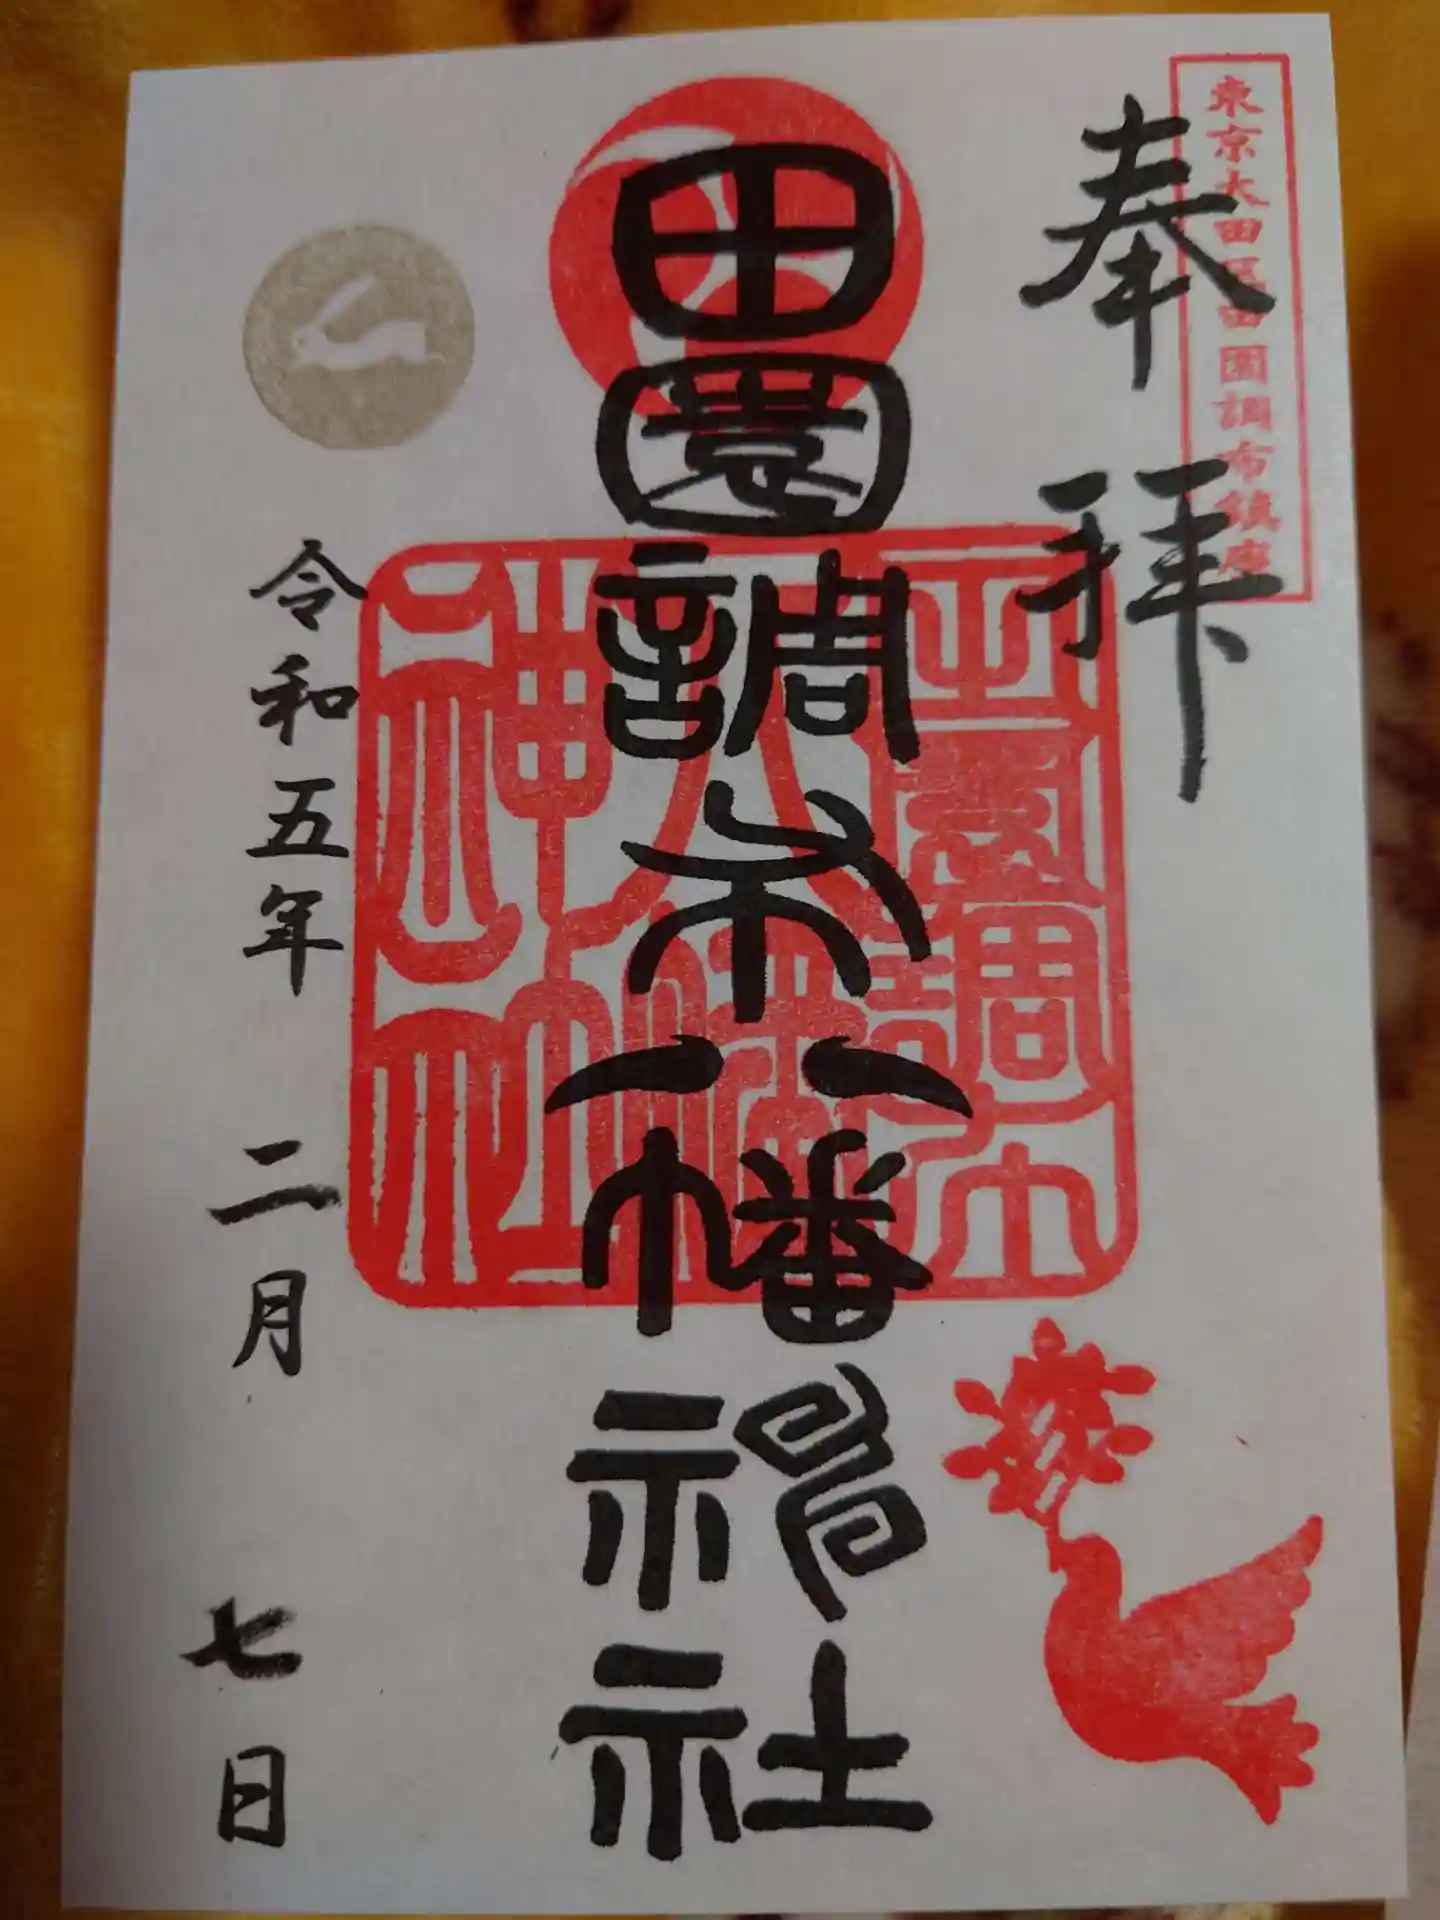 東京大田区田園調布鎮座
奉拝
田園調布八幡神社
田園調布
八幡
神社
令和五年 二月 七日